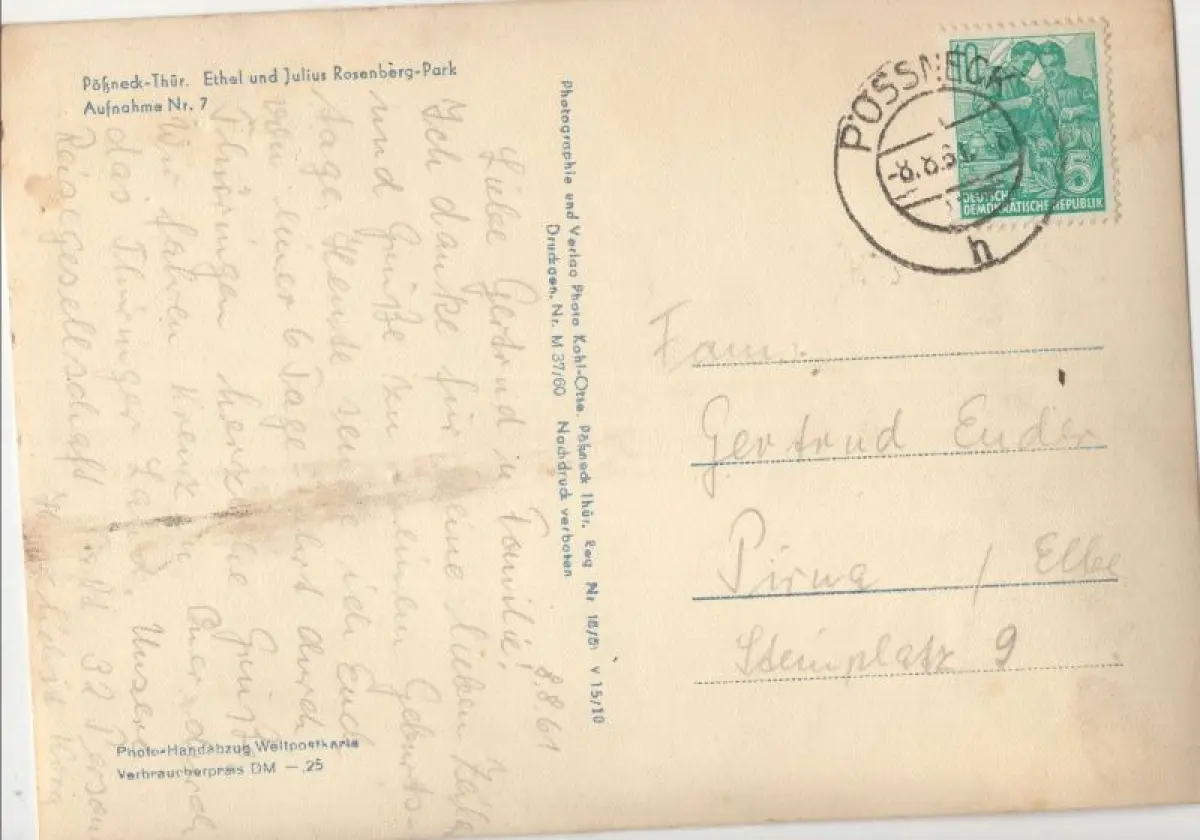 Pößneck-Thür. Ethel und Julius Rosenberg-Park
Aufnahme Nr. 7
8.8.61
Liebe Gertrud u. Familie!
Ich danke für deine lieben Zeilen
und Grüße zu meinem Geburts-
tage. Heute sende ich Euch
von einer 6 Tage-Fahrt durch
Thüringen herzliche Grüße
Wir fahren kreuz u. quer durch
das Thüringer Land. Unsere
Reisegesellschaft 32 Person
Photo-Handabzug Weltpostkarte
Verbraucherpreis DM —,25
Photographie und Verlag Photo Kohl-Otte, Pößneck Thür. Reg Nr 18/61 V 15/10
Druckgen. Nr. M 37/60 Nachdruck verboten
PÖSSNECK
-8.8.61
h
10
5
DEUTSCHE
DEMOKRATISCHE REPUBLIK
Fam.
Gertrud Ender
Pirna / Elbe
Steinplatz 9